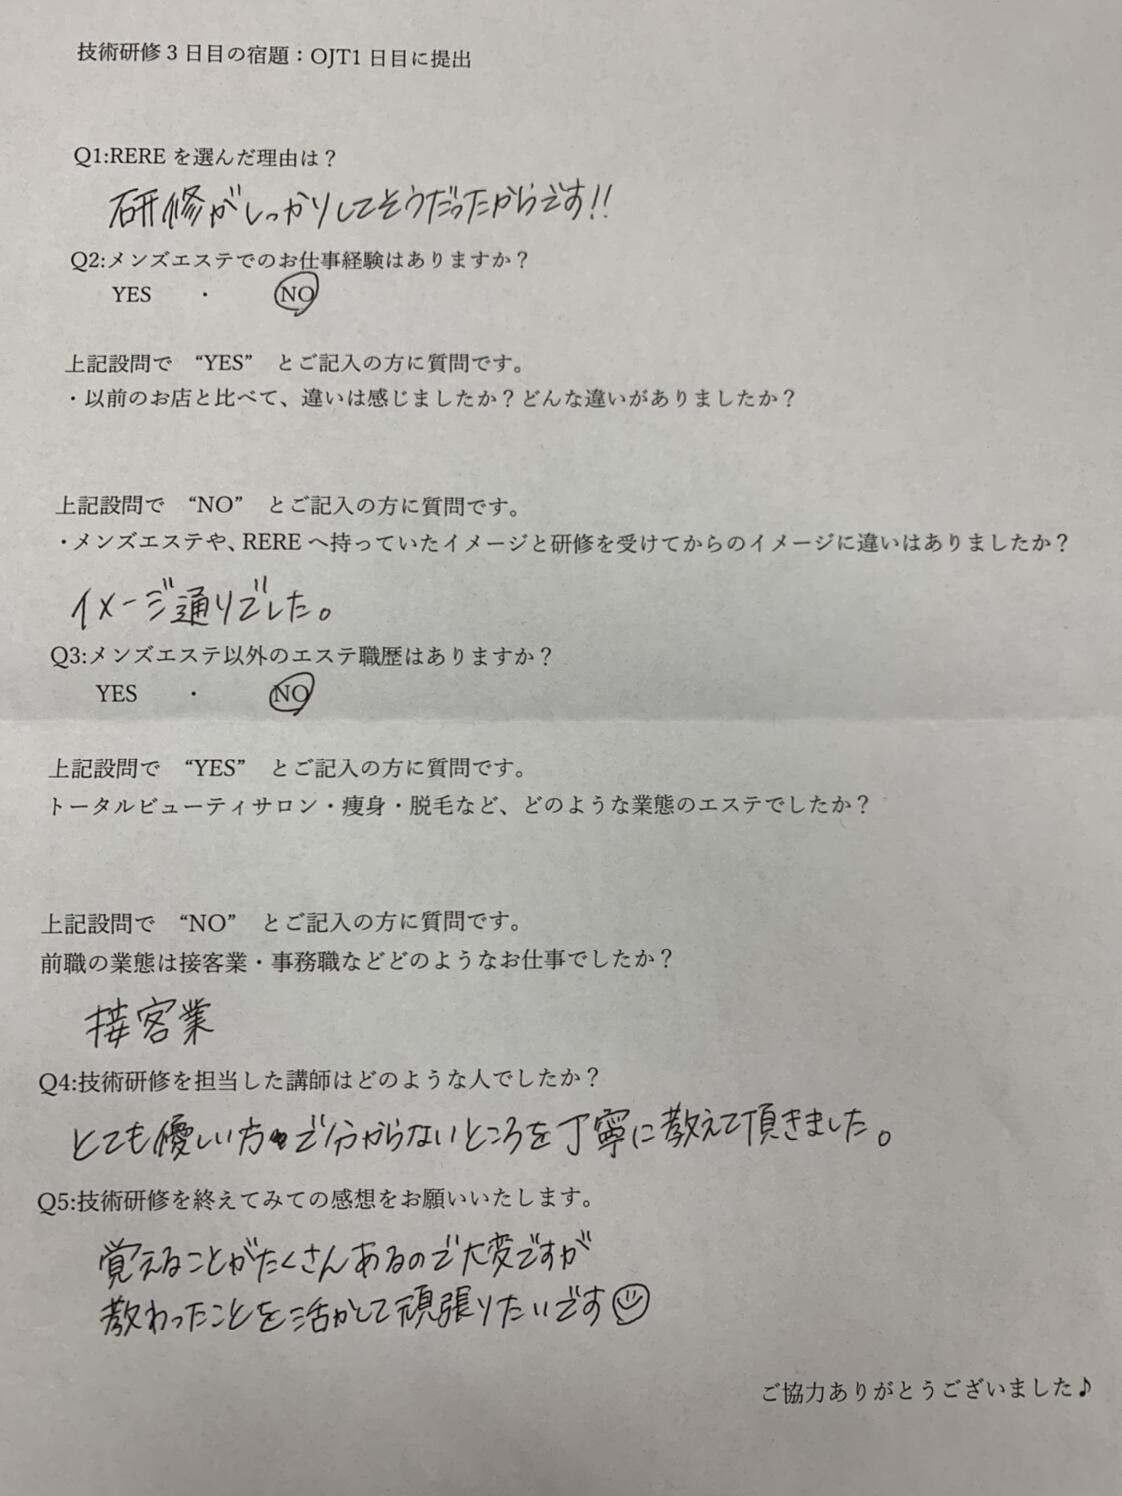 技術研修3日目の宿題：OJT1日目に提出
Q1:RERE を選んだ理由は？
研修がしっかりしてそうだったからです!!
Q2:メンズエステでのお仕事経験はありますか？
YES ・ NO
上記設問で “YES” とご記入の方に質問です。
・以前のお店と比べて、違いは感じましたか？どんな違いがありましたか？
上記設問で “NO” とご記入の方に質問です。
・メンズエステや、RERE へ持っていたイメージと研修を受けてからのイメージに違いはありましたか？
イメージ通りでした。
Q3:メンズエステ以外のエステ職歴はありますか？
YES ・ NO
上記設問で “YES” とご記入の方に質問です。
トータルビューティサロン・痩身・脱毛など、どのような業態のエステでしたか？
上記設問で “NO” とご記入の方に質問です。
前職の業態は接客業・事務職などどのようなお仕事でしたか？
接客業
Q4:技術研修を担当した講師はどのような人でしたか？
とても優しい方で分からないところを丁寧に教えて頂きました。
Q5:技術研修を終えてみての感想をお願いいたします。
覚えることがたくさんあるので大変ですが
教わったことを活かして頑張りたいです☺
ご協力ありがとうございました♪